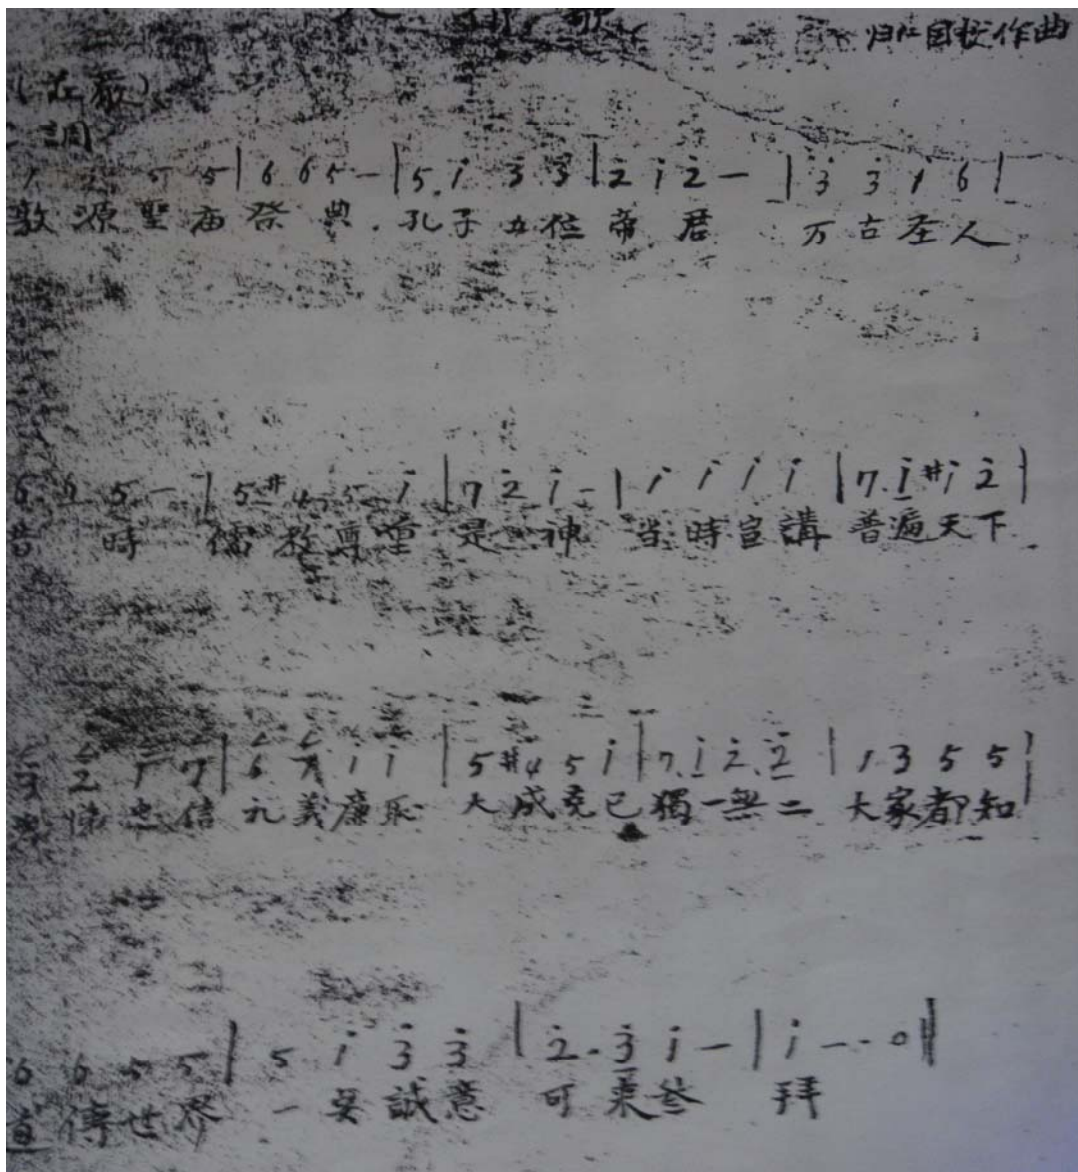 国校作曲
(莊嚴)
調
5 | 6 6 5 - | 5. i 3 3 | 2 i 2 - | 3 3 i 6 |
敦源聖庙祭典.孔子五位帝君 万古圣人
6. 6 5 - | 5 #4 5 i | 7 2 i - | i i i i | 7. i #i 2 |
昔時 儒教尊重是神 当時宣講 普遍天下
2 1 7 | 6 7 i i | 5 #4 5 i | 7. i 2. 2 | 1 3 5 5 |
悌忠信 礼義廉恥 大成克己獨一無二 大家都知
6 6 5 5 | 5 i 3 3 | 2. 3 i - | i - - 0 ‖
傳世界 一妥誠意 可来叁 拜